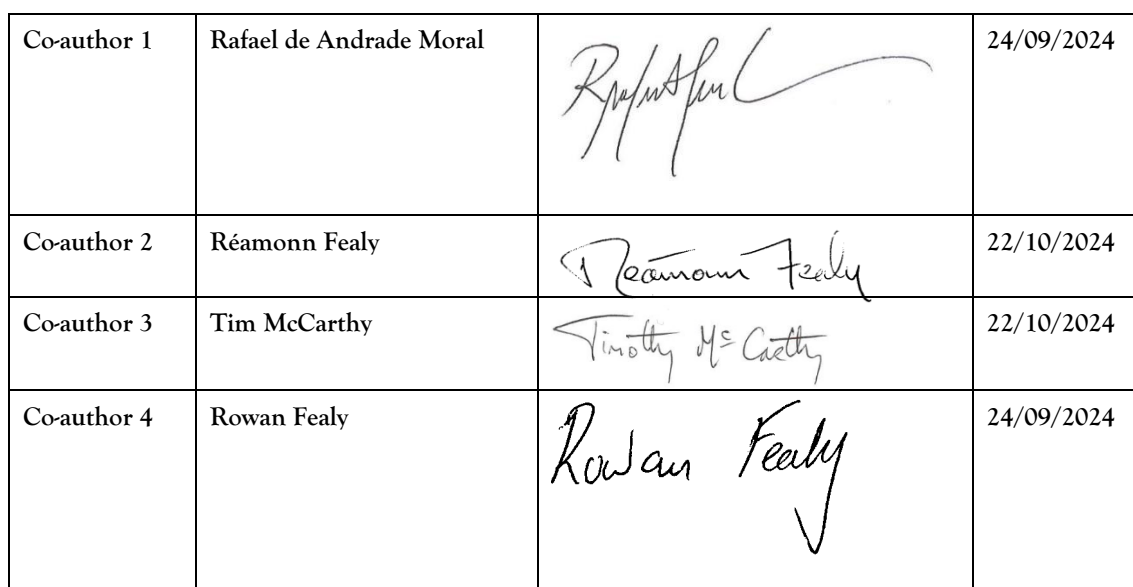 Co-author 1 Rafael de Andrade Moral 24/09/2024
Co-author 2 Réamonn Fealy Réamonn Fealy 22/10/2024
Co-author 3 Tim McCarthy Timothy Mc Carthy 22/10/2024
Co-author 4 Rowan Fealy Rowan Fealy 24/09/2024